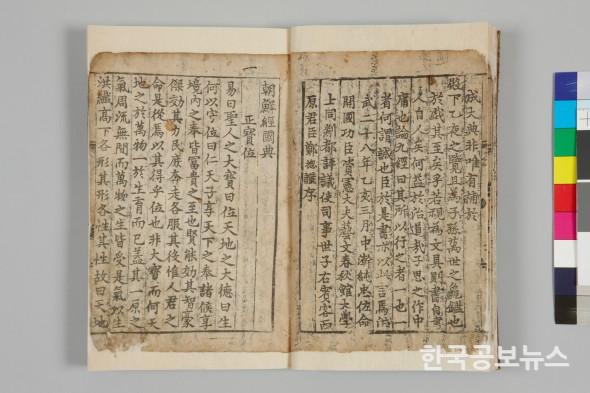 成大典非唯有補於
殿下乙夜之覽且爲子孫萬世之龜鑑也
於戲其至矣乎若視爲文具則書自書
人自人矣何益於治道哉子思之作中
庸也論九經曰其所以行之者一也一
者何謂誠也臣於是書亦以此言焉洪
武二十八年乙亥三月中澣純忠佐命
開國功臣資憲大夫藝文春秋館大學
士同判都評議使司事世子右賓客西
原君臣鄭摠謹序
朝鮮經國典
正寶位
易曰聖人之大寶曰位天地之大德曰生
何以守位曰仁天子享天下之奉諸侯享
境內之奉皆富貴之至也賢能效其智豪
傑效其力民庶奔走各服其役惟人君之
命是從焉以其得乎位也非大寶而何天
地之於萬物一於生育而已蓋其一原之
氣周流無間而萬物之生皆受是氣以生
洪纖高下各形其形各性其性故曰天地
한국공보뉴스